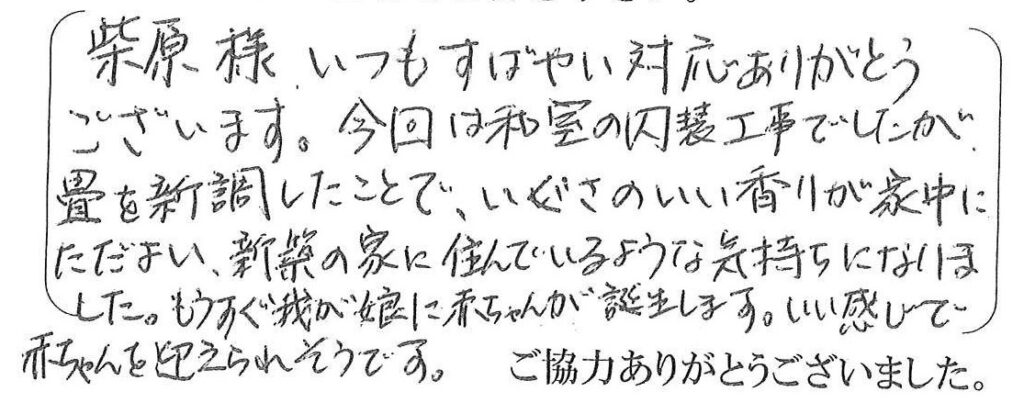 柴原様 いつもすばやい対応ありがとう
ございます。今回は和室の内装工事でしたが、
畳を新調したことで、いぐさのいい香りが家中に
ただよい、新築の家に住んでいるような気持ちになりま
した。もうすぐ我が娘に赤ちゃんが誕生します。いい感じで
赤ちゃんを迎えられそうです。 ご協力ありがとうございました。